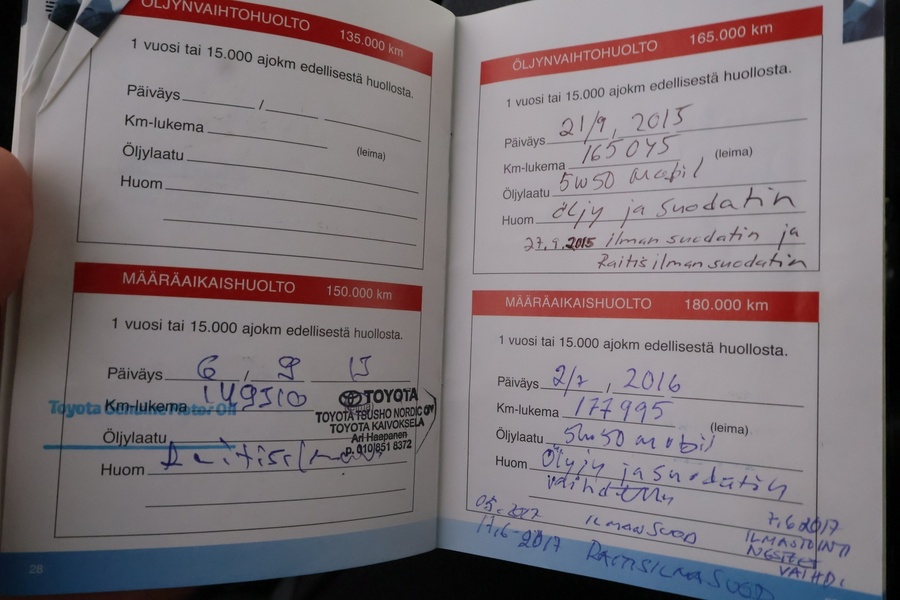 ÖLJYNVAIHTOHUOLTO 135.000 km
1 vuosi tai 15.000 ajokm edellisestä huollosta.
Päiväys /
Km-lukema
(leima)
Öljylaatu
Huom
MÄÄRÄAIKAISHUOLTO 150.000 km
1 vuosi tai 15.000 ajokm edellisestä huollosta.
Päiväys 6 , 9 13
Km-lukema 149510
Toyota Genuine Motor Oil
TOYOTA
TOYOTA TSUSHO NORDIC OY
TOYOTA KAIVOKSELA
Ari Haapanen
p. 010 851 8372
Öljylaatu
Huom
28
ÖLJYNVAIHTOHUOLTO 165.000 km
1 vuosi tai 15.000 ajokm edellisestä huollosta.
Päiväys 21/9, 2015
Km-lukema 165045
(leima)
Öljylaatu 5w50 mobil
Huom öljy ja suodatin
27.9.2015 ilman suodatin ja
Raitisilmansuodatin
MÄÄRÄAIKAISHUOLTO 180.000 km
1 vuosi tai 15.000 ajokm edellisestä huollosta.
Päiväys 2/7 , 2016
Km-lukema 177995
(leima)
Öljylaatu 5w50 mobil
Huom Öljy ja suodatin
vaihdettu
17.6-2017
ILMANSUOD
RAITISILMASUOD
7.6 2017
ILMASTOINTI
VAIHD.